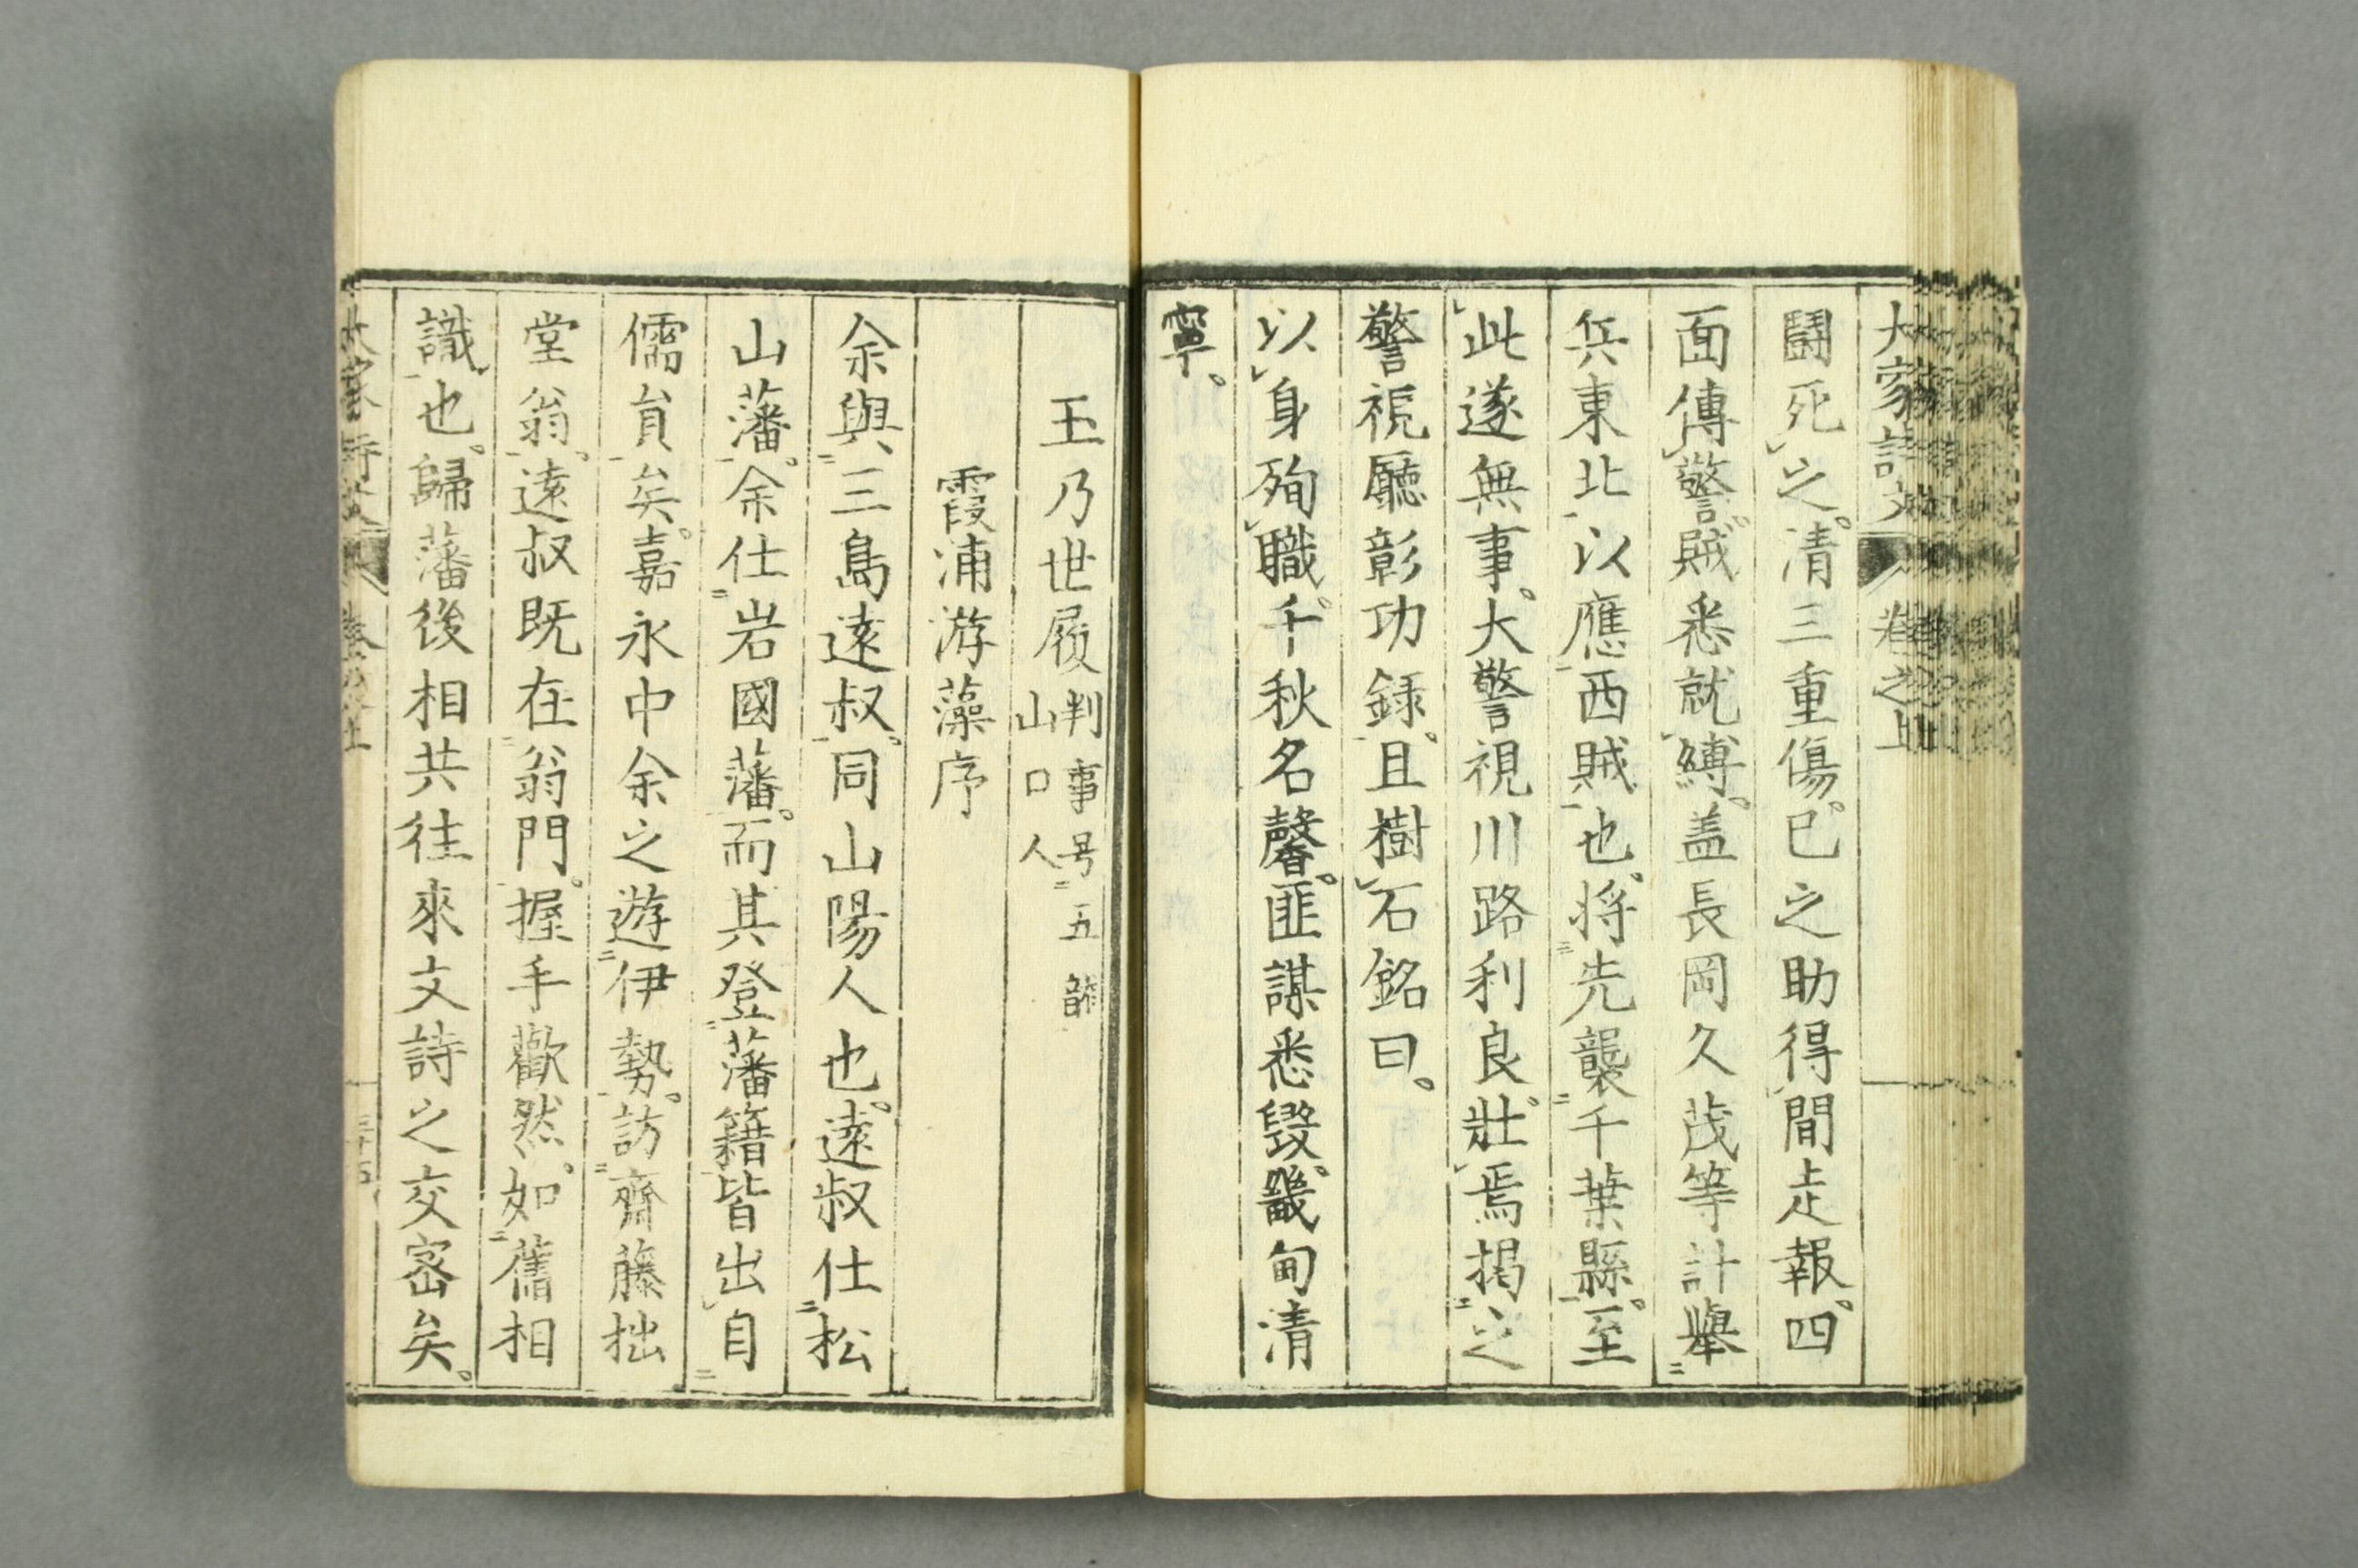 大家詩文 卷之上
鬪死之。清三重傷。已之助得間走報。四
面傳警。賊悉就縛。盖長岡久茂等計。舉
兵東北。以應西賊也。将先襲千葉縣。至
此遂無事。大警視川路利良。壯焉。掲之
警視廳彰功録。且樹石銘曰。
以身殉職。千秋名馨。匪謀悉毀。畿甸清
寧。
玉乃世履判事号五龍
山口人
霞浦游藻序
余與三島遠叔。同山陽人也。遠叔仕松
山藩。余仕岩國藩。而其登藩籍皆出自
儒員矣。嘉永中余之遊伊勢。訪齋藤拙
堂翁。遠叔既在翁門。握手歡然。如舊相
識也。歸藩後相共往來文詩之交密矣。